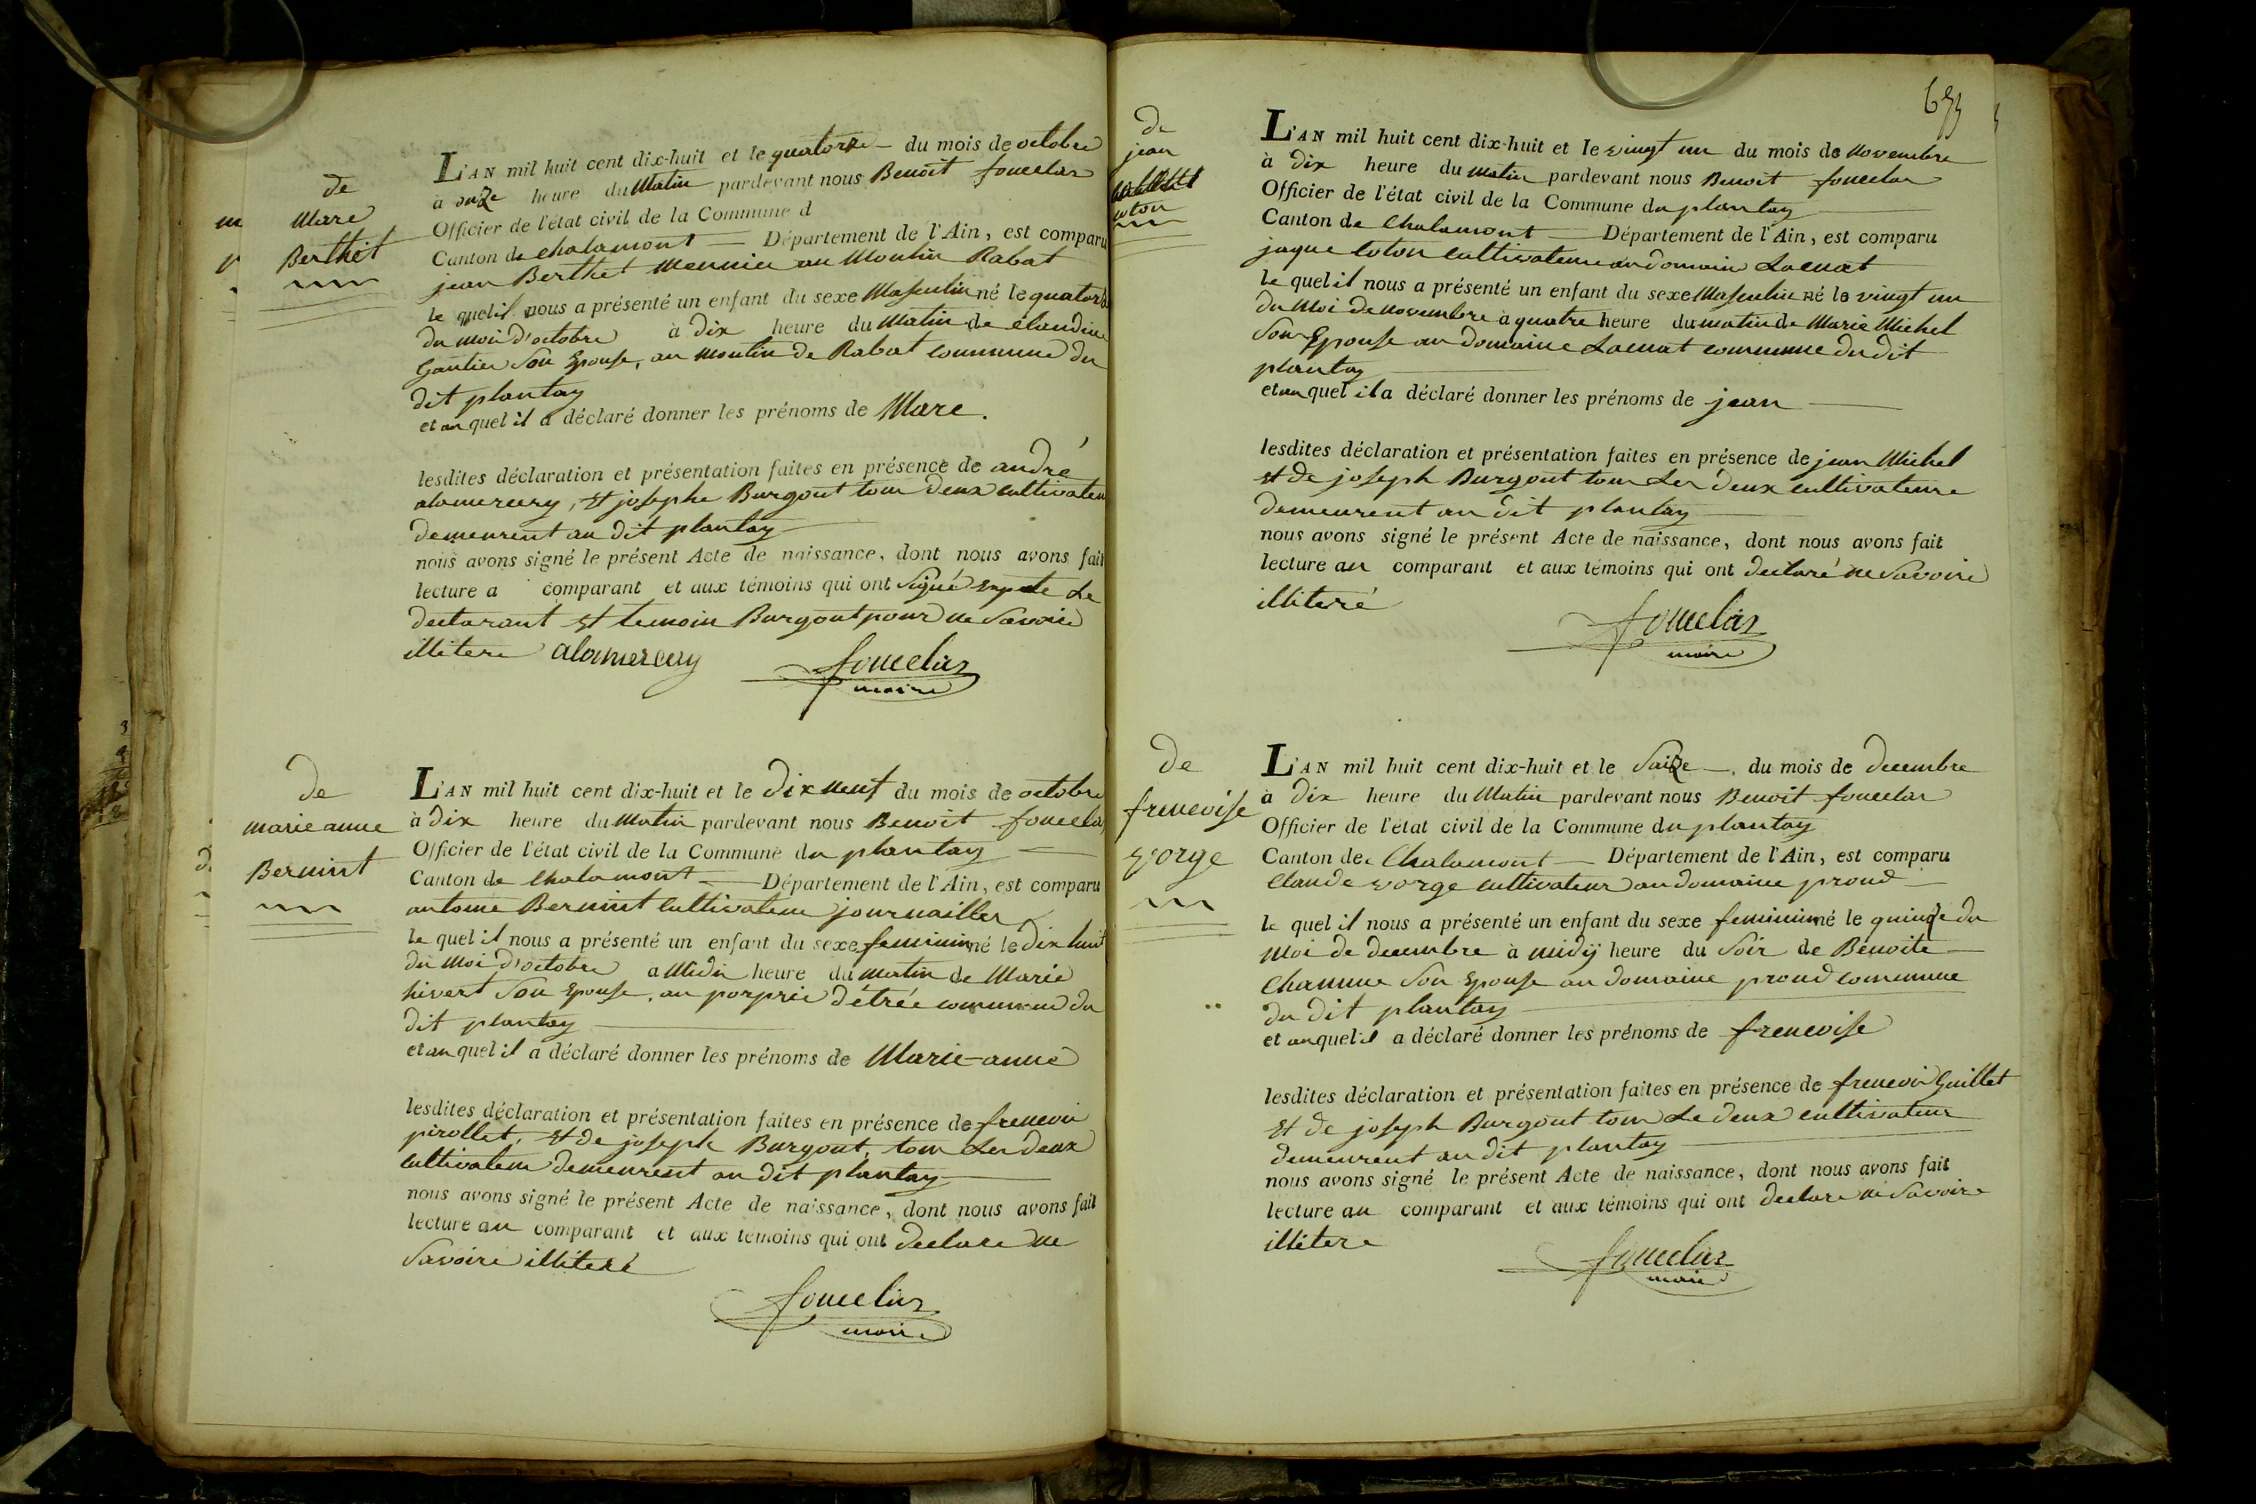 de
Marc
Berthet
L'AN mil huit cent dix-huit et le quatorze du mois de octobre
à onze heure du Matin pardevant nous Benoit foueelas
Officier de l'état civil de la Commune d
Canton de chalamont Département de l'Ain, est comparu
jean Berthet Meunier au Moulin Rabat
le quel il nous a présenté un enfant du sexe Masculin né le quatorze
du moi d'octobre à dix heure du Matin de claudine
Gautier Son Epouse, au moulin de Rabat commune du
dit plantay
et au quel il a déclaré donner les prénoms de Marc.
lesdites déclaration et présentation faites en présence de andré
alamercery, et josephe Burgout tour deux cultivateur
demeurent au dit plantay
nous avons signé le présent Acte de naissance, dont nous avons fait
lecture a comparant et aux témoins qui ont Signé Le
declarant et temoin Burgout pour ne Savoire
illitere alamercery foueelas
maire
de
marie anne
Bernint
L'AN mil huit cent dix-huit et le dix neuf du mois de octobre
à dix heure du Matin pardevant nous Benoit foueelas
Officier de l'état civil de la Commune du plantay
Canton de chalamont Département de l'Ain, est comparu
antoine Bernint cultivateur journailler
le quel il nous a présenté un enfant du sexe feminin né le dix huit
du Moi d'octobre a Midi heure du matin de Marie
hivert Son Epouse, au porprie d'étrée commune du
dit plantay
et au quel il a déclaré donner les prénoms de Marie-anne
lesdites déclaration et présentation faites en présence de frencoi
pirollet, et de joseph Burgout, tour Les deux
cultivateur demeurent au dit plantay
nous avons signé le présent Acte de naissance, dont nous avons fait
lecture au comparant et aux témoins qui ont declare ne
Savoire illiteré
foueelas
maire
653
de
jean
coton
L'AN mil huit cent dix-huit et le vingt un du mois de Novembre
à dix heure du matin pardevant nous Benoit foueelas
Officier de l'état civil de la Commune du plantay
Canton de Chalamont Département de l'Ain, est comparu
jaque coton cultivateur au domaine Lacuat
le quel il nous a présenté un enfant du sexe Masculin né le vingt un
du Moi de Novembre à quatre heure du matin de Marie Michel
Son Epouse au domaine Lacuat commune du dit
plantay
et au quel il a déclaré donner les prénoms de jean
lesdites déclaration et présentation faites en présence de jean Michel
et de joseph Burgout tour Les deux cultivateure
demeurent au dit plantay
nous avons signé le présent Acte de naissance, dont nous avons fait
lecture au comparant et aux témoins qui ont declaré ne Savoire
illiteré
foueelas
maire
de
frencoise
vorge
L'AN mil huit cent dix-huit et le Saize du mois de decembre
à dix heure du Matin pardevant nous Benoit foueelas
Officier de l'état civil de la Commune du plantay
Canton de Chalamont Département de l'Ain, est comparu
Claude vorge cultivateur au domaine proud
le quel il nous a présenté un enfant du sexe feminin né le quinze du
Moi de decembre à midÿ heure du Soir de Benoite
Chanune Son Epouse au domaine proud commune
du dit plantay
et au quel il a déclaré donner les prénoms de frencoise
lesdites déclaration et présentation faites en présence de frencoi Guillet
et de joseph Burgout tour Le deux cultivateur
demeurent au dit plantay
nous avons signé le présent Acte de naissance, dont nous avons fait
lecture au comparant et aux témoins qui ont declare ne Savoire
illitere
foueelas
maire